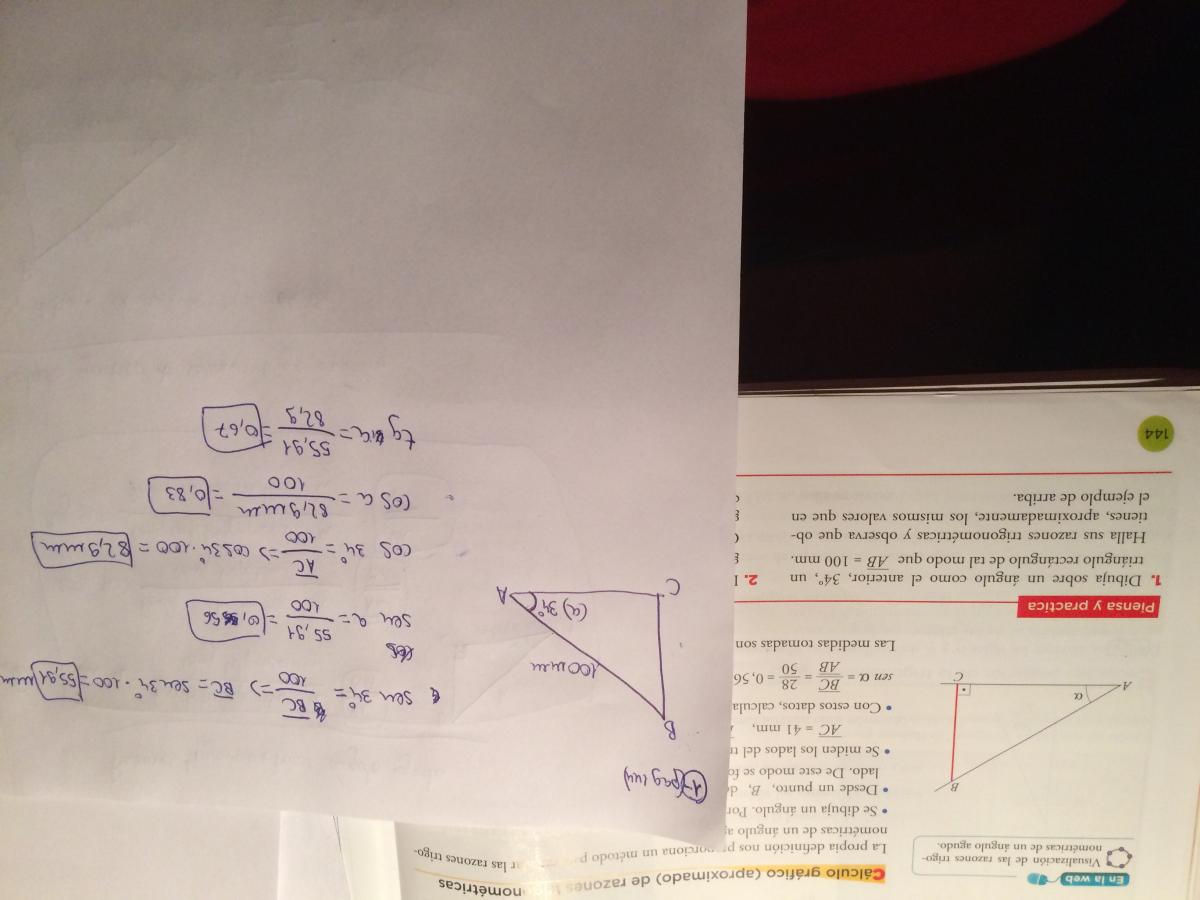 Cálculo gráfico (aproximado) de razones trigonométricas
En la web
Visualización de las razones trigo-
nométricas de un ángulo agudo.
La propia definición nos proporciona un método para las razones trigo-
nométricas de un ángulo
• Se dibuja un ángulo. Por
• Desde un punto, B, d
lado. De este modo se fo
• Se miden los lados del t
AC = 41 mm,
• Con estos datos, calcula
sen α = BC/AB = 28/50 = 0,56
Las medidas tomadas son
A
α
B
C
Piensa y practica
1. Dibuja sobre un ángulo como el anterior, 34°, un
triángulo rectángulo de tal modo que AB = 100 mm.
Halla sus razones trigonométricas y observa que ob-
tienes, aproximadamente, los mismos valores que en
el ejemplo de arriba.
2.
144
1 (pag 144)
B
100 mm
(a) 34°
A
C
sen 34° = BC/100 => BC = sen 34° · 100 = 55,91 mm
sen a = 55,91/100 = 0,56
cos 34° = AC/100 => cos 34° · 100 = 82,9 mm
cos a = 82,9 mm/100 = 0,83
tg a = 55,91/82,9 = 0,67